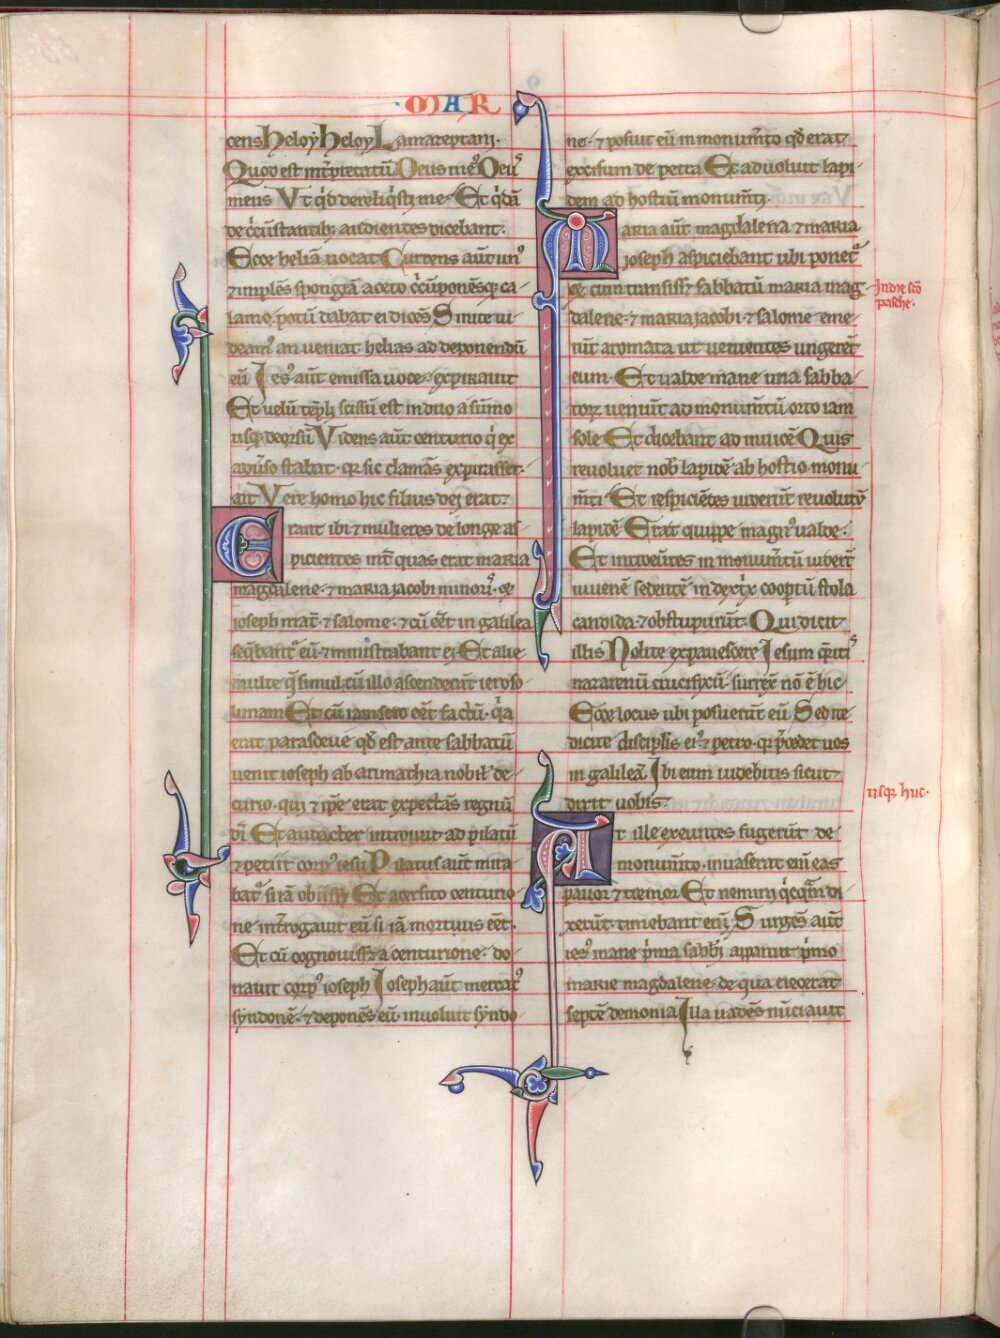 ·MAR
cens heloy heloy Lamazeptani·
Quod est int̃p̃tatũ Deus me᷒ Deu᷒
meus Vt q̇d dereliq̇sti me· Et q̇dã
de c̃cũstantib; audientes dicebant·
Ecce heliã uocat Currens aũt un᷒
⁊ implẽs spongiã aceto c̃cũponẽsq; ca-
lamo potũ dabat ei dicẽs Sinite ui-
deam᷒ an ueniat helias ad deponendũ
eũ Ies᷒ aũt emissa uoce expirauit
Et uelũ tẽpli scissũ est in duo a sũmo
usq; deorsũ Videns aũt centurio q̇ ex
aduẽso stabat· q̃ sic clamãs expirasset·
ait Vere homo hic filius dei erat·
Erant ibi ⁊ mulieres de longe as-
picientes int̃ quas erat maria
magdalene· ⁊ maria iacobi minori᷒· ⁊
ioseph mat̃· ⁊ salome· ⁊ cũ eẽt in galilea
seq̃bant̃ eũ· ⁊ ministrabant ei· Et alie
multe q̃ simul cũ illo ascenderãt ieroso-
limam Et cũ iam sero eẽt factũ· q̇a
erat parasceue qď est ante sabbatũ
uenit ioseph ab arimathia nobil̃ de-
curio· qui ⁊ ip̃e erat expectãs regnũ
dĩ Et audacter introiuit ad pilatũ
⁊ petiit corp᷒ iesu Pilatus aũt mira-
bat̃ si iã obiisset Et acersito centurio-
ne int̃rogauit eũ si iã mortuus eẽt·
Et cũ cognouisset a centurione· do-
nauit corp᷒ ioseph Ioseph aũt mercat᷒
syndonẽ· ⁊ deponẽs eũ· inuoluit syndo-
ne· ⁊ posuit eũ in monum̃to qď erat
excisum de petra Et aduoluit lapi-
dem ad hostiũ monum̃ti·
Maria aũt magdalena ⁊ maria
ioseph aspiciebant ubi poneret̃
Et cum transisset sabbatũ maria mag-
dalene· ⁊ maria iacobi· ⁊ salome eme-
rũt aromata ut uenientes ungerẽt
eum· Et ualde mane una sabba-
torꝝ ueniũt ad monum̃tũ orto iam
sole Et dicebant ad inuicẽ Quis
reuoluet nob̃ lapidẽ ab hostio monu-
m̃ti· Et respiciẽtes uiderũt reuolutũ
lapidẽ Erat quippe magn᷒ ualde·
Et introeũtes in monum̃tũ uiderũt
iuuenẽ sedentẽ in dext̃s coop̃tũ stola
candida· ⁊ obstupuerũt· Qui dicit
illis Nolite expauescere Iesum q̃riti᷒
nazarenũ crucifixũ· surrex̃ nõ ẽ hic
Ecce locus ubi posuerũt eũ Sed ite
dicite discip̃lis ei᷒ ⁊ petro· q̃ p̃cedet uos
in galileã Ibi eum uidebitis sicut
dixit uobis·
At ille exeuntes fugerũt de
monum̃to· inuaserat eni eas
pauor ⁊ tremor Et nemini q̇cq̃m di-
xerũt· timebant eni Surgẽs aũt
ies᷒ mane p̃ma sabb̃i apparuit p̃mo
marie magdalene· de qua eiecerat
septẽ demonia Illa uadẽs nũciauit
In die sc̃o
pasche·
usq; huc·